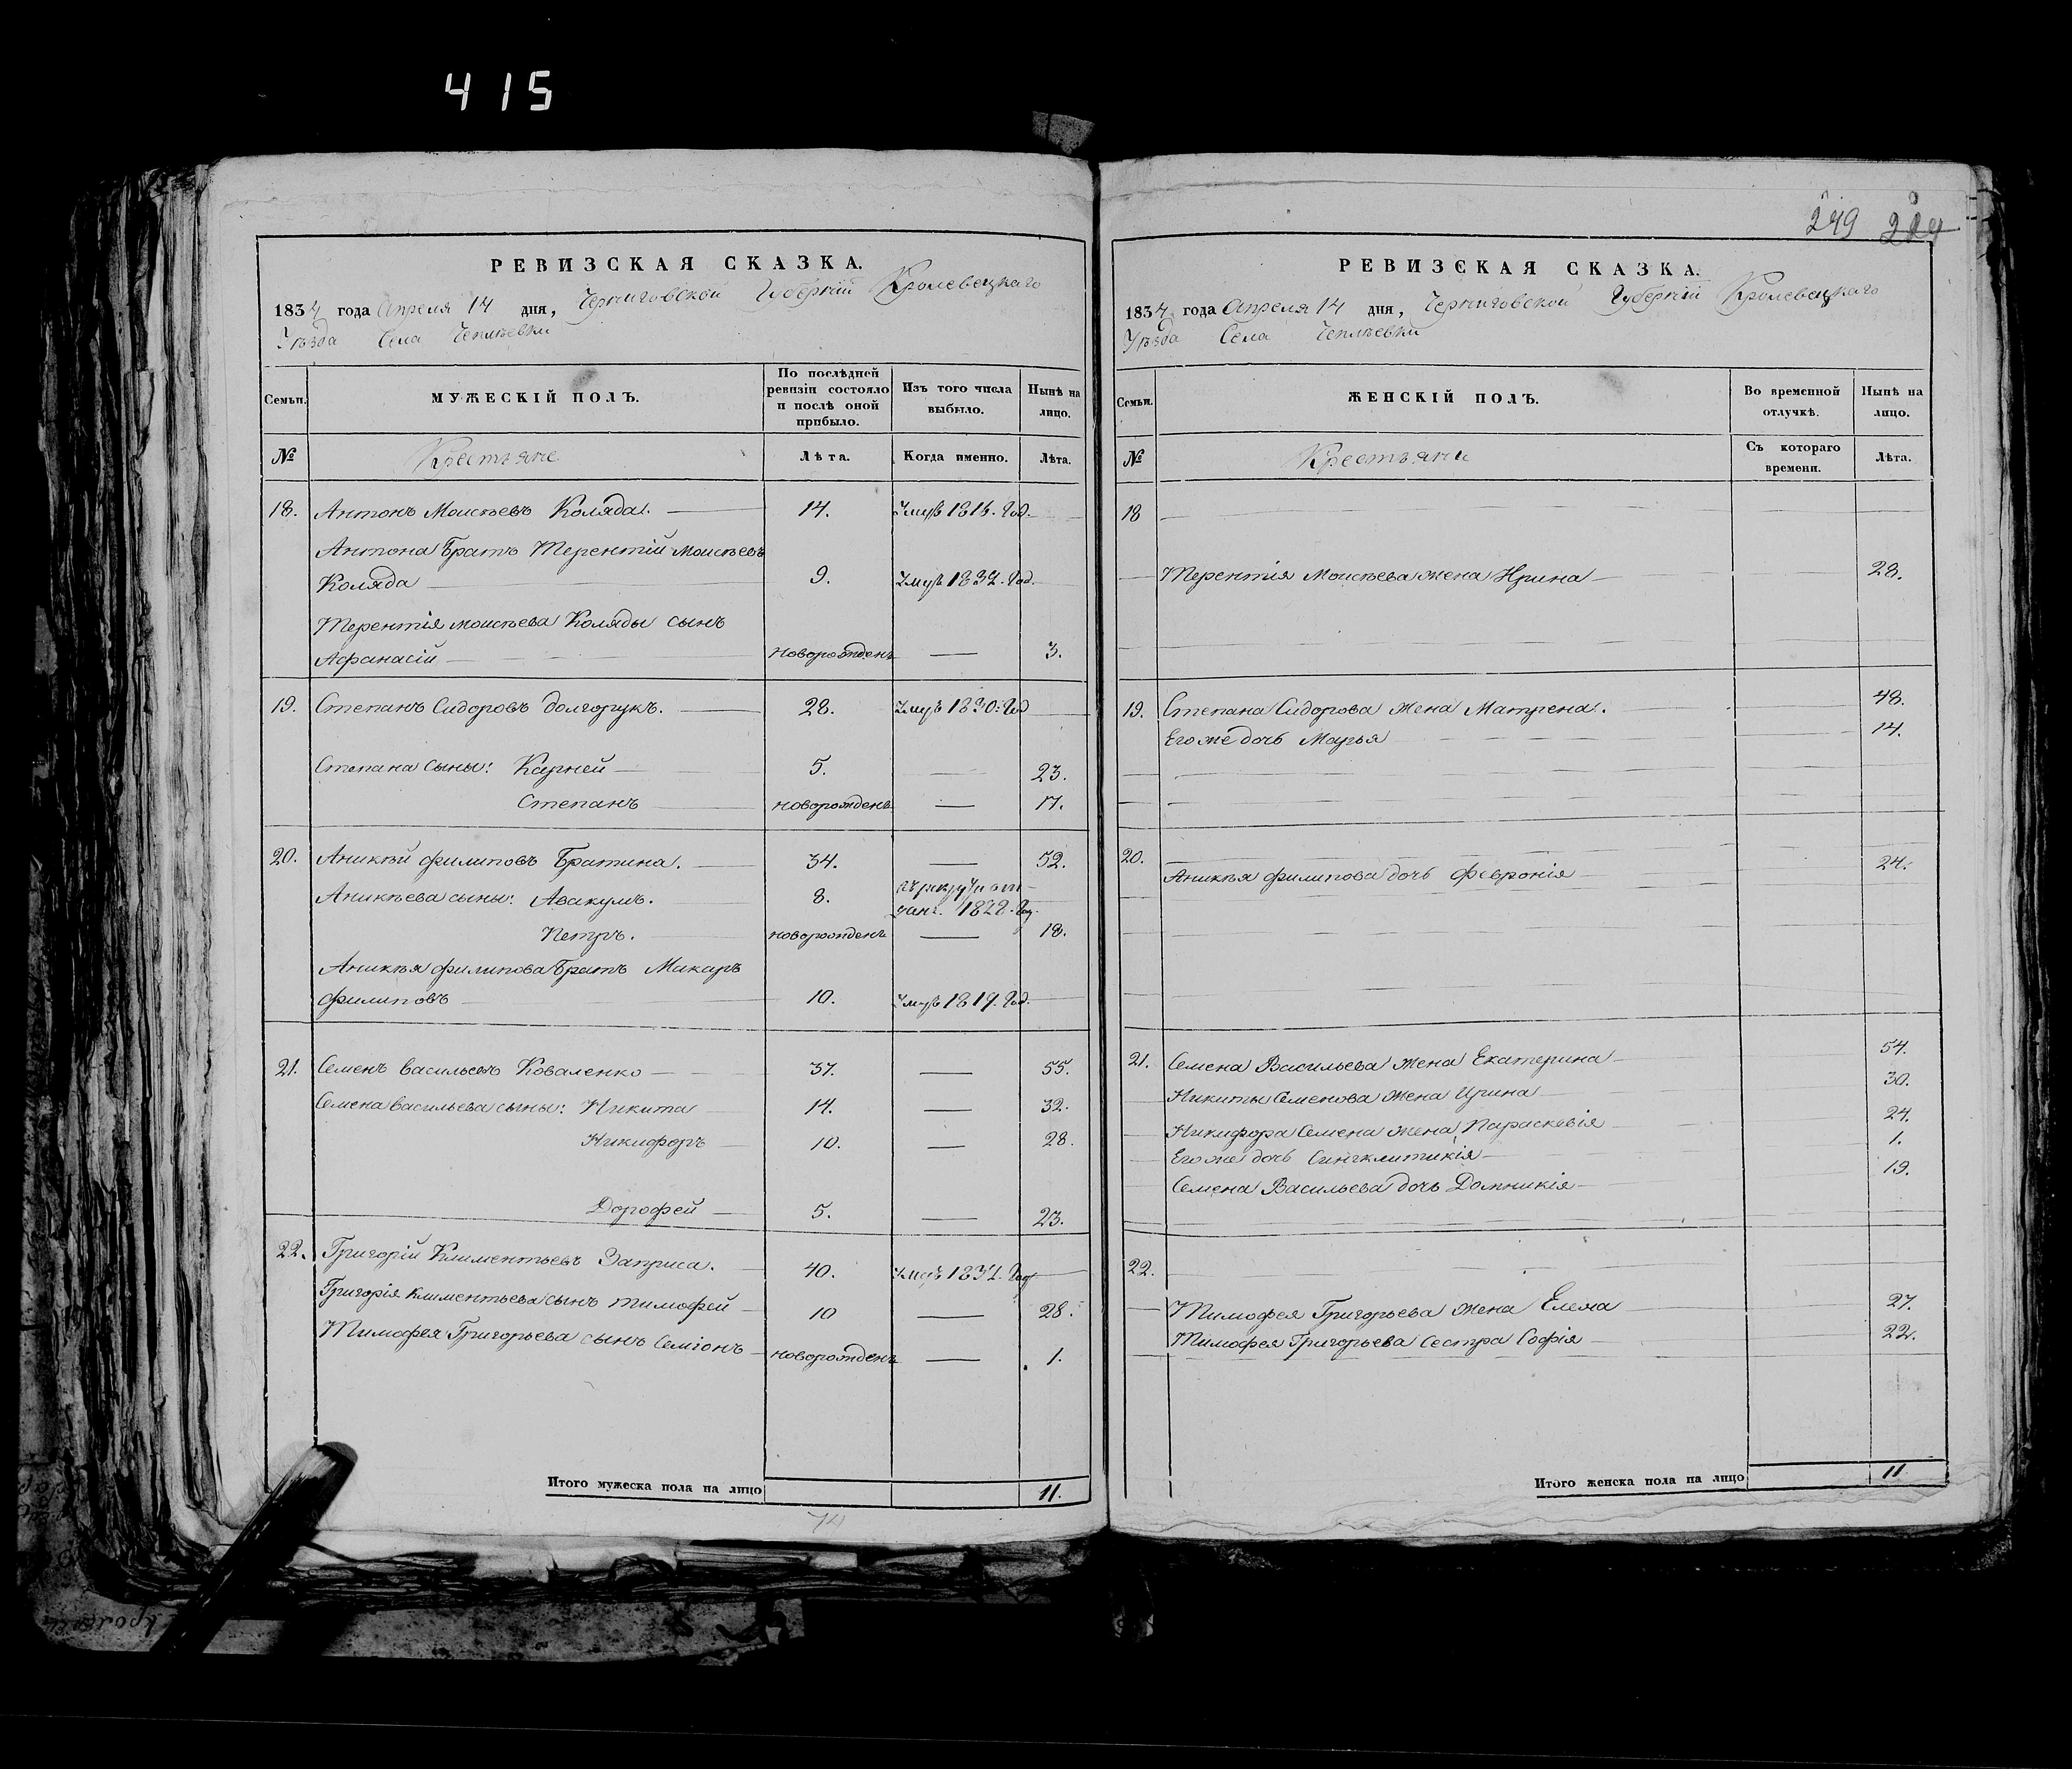 415
249 224
РЕВИЗСКАЯ СКАЗКА.
1834 года Апреля 14 дня, Черниговской Губерніи Кролевецкаго
Уѣзда Села Чеплѣевки
Семьи.
МУЖЕСКІЙ ПОЛЪ.
По послѣдней ревизіи состояло и послѣ оной прибыло.
Изъ того числа выбыло.
Нынѣ на лицо.
№
Крестьяне
Лѣта.
Когда именно.
Лѣта.
18. Антонъ Моисѣевъ Коляда. 14. Умръ 1816. Год.
Антона Братъ Терентій Моисѣевъ
Коляда 9. Умръ 1832. Год.
Терентія Моисѣева Коляды сынъ
Афанасій новорожденъ 3.
19. Степанъ Сидоровъ Долгорукъ. 28. Умръ 1830. Год
Степана сыны: Карней 5. 23.
Степанъ новорожденъ 17.
20. Аникѣй филиповъ Братина. 34. 52.
Аникѣева сыны: Авакумъ. 8. въ рекруты от
данъ. 1822. Год.
Петръ. новорожденъ 18.
Аникѣя филипова Братъ Макаръ
филиповъ 10. Умръ 1819. Год.
21. Семенъ васильевъ Коваленко 37. 55.
Семена васильева сыны: Никита 14. 32.
Никифоръ 10. 28.
Дорофей 5. 23.
22. Григорій Климентьевъ Заприса. 40. Умръ 1832. Год
Григорія климентьева сынъ тимофей 10 28.
Тимофея Григорьева сынъ Семіонъ новорожденъ 1.
Итого мужеска пола на лицо 11.
74
РЕВИЗСКАЯ СКАЗКА.
1834 года Апреля 14 дня, Черниговской Губерніи Кролевецкаго
Уѣзда Села Чеплѣевки
Семьи.
ЖЕНСКІЙ ПОЛЪ.
Во временной отлучкѣ.
Нынѣ на лицо.
№
Крестьяни
Съ котораго времени.
Лѣта.
18
Терентія Моисѣева жена Ирина 28.
19. Степана Сидорова жена Матрена. 48.
Его же дочь Марья 14.
20.
Аникѣя филипова дочь Февронія 24.
21. Семена Васильева жена Екатерина 54.
Никиты Семенова жена Ирина 30.
Никифора Семена жена Параскевія 24.
Его же дочь Сингклитикія 1.
Семена Васильева дочь Домникія 19.
22.
Тимофея Григорьева жена Елена 27.
Тимофея Григорьева Сестра Софія 22.
Итого женска пола на лицо 11